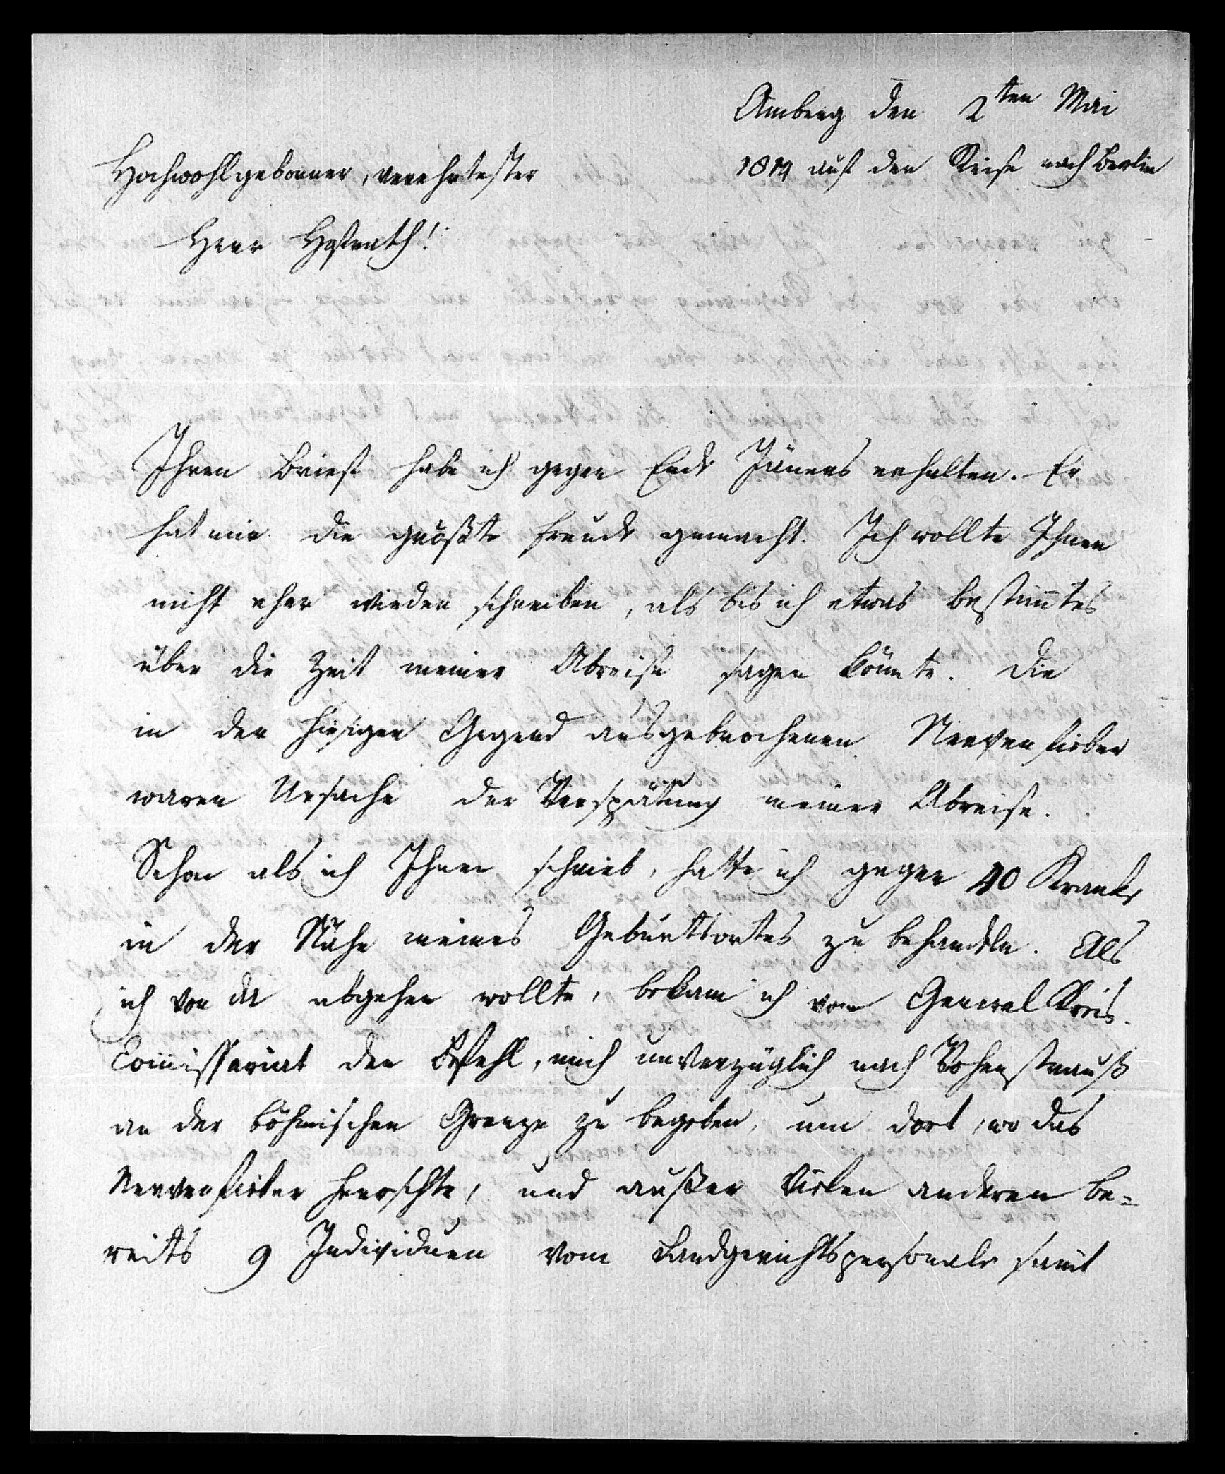 Amberg den 2ten Mai
1814 auf der Reise nach Berlin
Hochwohlgeborner, verehrtester
Herr Hofrath!
Ihren Brief habe ich gegen Ende Jäners erhalten. Er
hat mir die größte Freude gemacht. Ich wollte Ihnen
nicht eher wieder schreiben, als bis ich etwas bestim̅tes
über die Zeit meiner Abreise sagen kön̅te. Die
in der hiesigen Gegend ausgebrochenen Nervenfieber
waren Ursache der Verspätung meiner Abreise.
Schon als ich Ihnen schrieb, hatte ich gegen 40 Kranke
in der Nähe meines Geburtsortes zu behandeln. Als
ich von da abgehen wollte, bekam ich vom General Kreis.
Com̅issariat den Befehl, mich unverzüglich nach Vohenstrauß
an der böhmischen Grenze zu begeben, um dort, wo das
Nervenfieber herrschte, und außer vielen anderen be=
reits 9 Individuen vom Landgerichtspersonale sam̅t